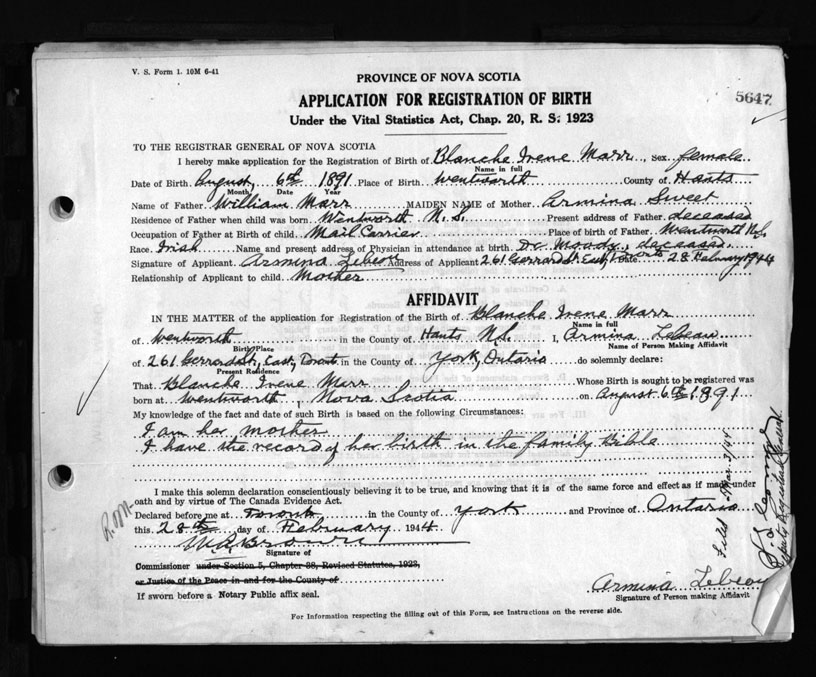 V. S. Form 1. 10M 6-41
PROVINCE OF NOVA SCOTIA
5647
APPLICATION FOR REGISTRATION OF BIRTH
Under the Vital Statistics Act, Chap. 20, R. S. 1923
TO THE REGISTRAR GENERAL OF NOVA SCOTIA
I hereby make application for the Registration of Birth of Blanche Irene Marr, Sex female
Name in full
Date of Birth August 6th 1891 Place of Birth Wentworth County of Hants
Month Date Year
Name of Father William Marr MAIDEN NAME of Mother Armina Sweet
Residence of Father when child was born Wentworth N.S. Present address of Father deceased
Occupation of Father at Birth of child Mail Carrier Place of birth of Father Wentworth N.S.
Race Irish Name and present address of Physician in attendance at birth Dr Moody, deceased.
Signature of Applicant Armina Lebeau Address of Applicant 261 Gerrard St East, Toronto 28 February 1944
Relationship of Applicant to child Mother
AFFIDAVIT
IN THE MATTER of the application for Registration of the Birth of Blanche Irene Marr
Name in full
of Wentworth in the County of Hants N.S. I, Armina Lebeau
Birth Place Name of Person Making Affidavit
of 261 Gerrard St, East, Toronto in the County of York, Ontario do solemnly declare:
Present Residence
That Blanche Irene Marr Whose Birth is sought to be registered was
born at Wentworth, Nova Scotia on August 6th, 1891
My knowledge of the fact and date of such Birth is based on the following Circumstances:
I am her mother
I have the record of her birth in the family Bible
I make this solemn declaration conscientiously believing it to be true, and knowing that it is of the same force and effect as if made under
oath and by virtue of The Canada Evidence Act.
Declared before me at Toronto in the County of York and Province of Ontario
this 28th day of February 1944
Signature of
Commissioner under Section 5, Chapter 38, Revised Statutes, 1923,
or Justice of the Peace in and for the County of
If sworn before a Notary Public affix seal.
Armina Lebeau
Signature of Person making Affidavit
For Information respecting the filling out of this Form, see Instructions on the reverse side.
Filed Mar. 3/44
Deputy Registrar General